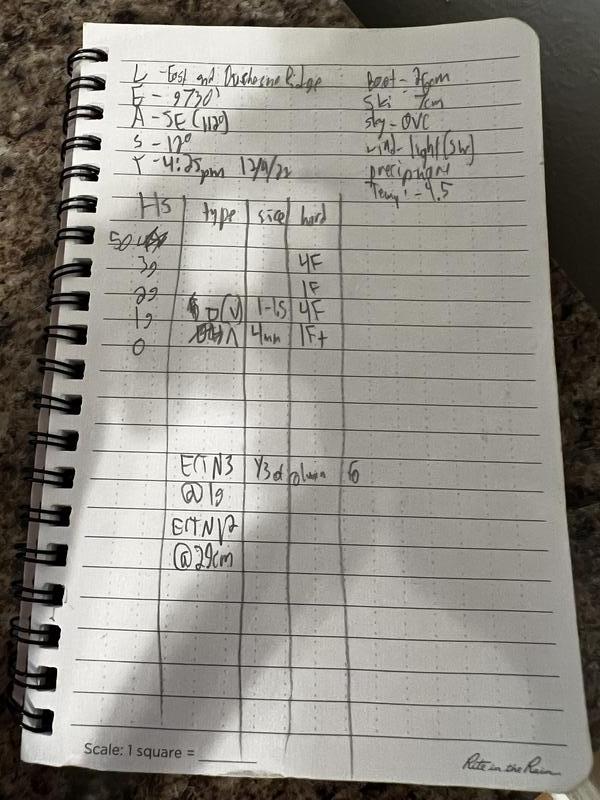 L - East and Duchesne Ridge
E - 9730'
A - SE (112°)
S - 17°
T - 4:25pm 12/9/22
Boot - 26cm
Ski - 7cm
sky - OVC
wind - light (SW)
precip
Temp: -4.5
Hs type size hard
50
39 4F
29 1F
19 □(V) 1-1.5 4F
0 Λ 4mm 1F+
ECTN3 1/3 of
@19
ECTN12
@29cm
Scale: 1 square =
Rite in the Rain